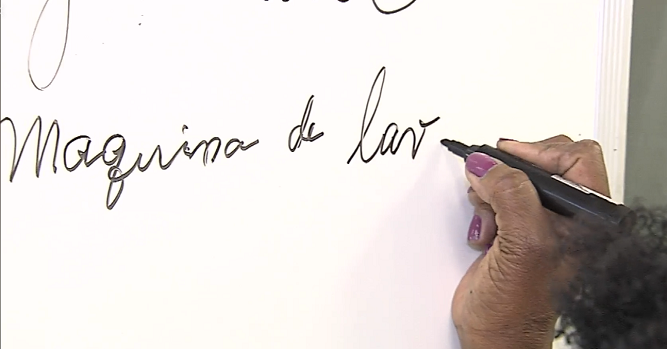 Maquina de lav